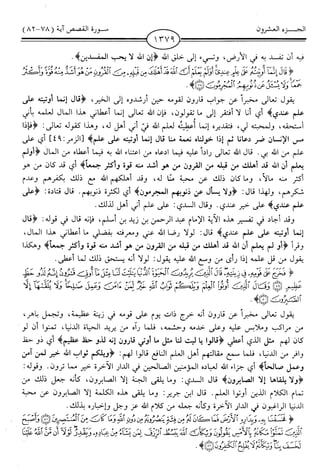 الجزء العشرون
١٣٧٩
سورة القصص آية (٧٨-٨٢)
فيه أن تفسد به في الأرض، وتسيء إلى خلق الله ﴿إن الله لا يحب المفسدين﴾.
﴿قَالَ إِنَّمَا أُوتِيتُهُ عَلَىٰ عِلْمٍ عِندِي أَوَلَمْ يَعْلَمْ أَنَّ اللَّهَ قَدْ أَهْلَكَ مِن قَبْلِهِ مِنَ الْقُرُونِ مَنْ هُوَ أَشَدُّ مِنْهُ قُوَّةً وَأَكْثَرُ
جَمْعًا وَلَا يُسْأَلُ عَن ذُنُوبِهِمُ الْمُجْرِمُونَ﴾
يقول تعالى مخبراً عن جواب قارون لقومه حين أرشدوه إلى الخير، ﴿قال إنما أوتيته على
علم عندي﴾ أي أنا لا أفتقر إلى ما تقولون، فإن الله تعالى إنما أعطاني هذا المال لعلمه بأني
أستحقه، ولمحبته لي، فتقديره إنما أعطيته لعلم الله فيّ أني أهل له، وهذا كقوله تعالى: ﴿فإذا
مس الإنسان ضر دعانا ثم إذا خولناه نعمة منا قال إنما أوتيته على علم﴾ [الزمر: ٤٩] أي على
علم من الله بي. قال الله تعالى راداً عليه فيما ادعاه من اعتناء الله به فيما أعطاه من المال ﴿أولم
يعلم أن الله قد أهلك من قبله من القرون من هو أشد منه قوة وأكثر جمعاً﴾ أي قد كان من هو
أكثر منه مالاً، وما كان ذلك عن محبة منا له، وقد أهلكهم الله مع ذلك بكفرهم وعدم
شكرهم، ولهذا قال: ﴿ولا يسأل عن ذنوبهم المجرمون﴾ أي لكثرة ذنوبهم. قال قتادة: ﴿على
علم عندي﴾ على خير عندي. وقال السدي: على علم أني أهل لذلك.
وقد أجاد في تفسير هذه الآية الإمام عبد الرحمن بن زيد بن أسلم، فإنه قال في قوله: ﴿قال
إنما أوتيته على علم عندي﴾ قال: لولا رضا الله عني ومعرفته بفضلي ما أعطاني هذا المال،
وقرأ ﴿أو لم يعلم أن الله قد أهلك من قبله من القرون من هو أشد منه قوة وأكثر جمعاً﴾ وهكذا
يقول من قل علمه إذا رأى من وسع الله عليه يقول: لولا أنه يستحق ذلك لما أعطى.
﴿فَخَرَجَ عَلَىٰ قَوْمِهِ فِي زِينَتِهِ قَالَ الَّذِينَ يُرِيدُونَ الْحَيَاةَ الدُّنْيَا يَا لَيْتَ لَنَا مِثْلَ مَا أُوتِيَ قَارُونُ إِنَّهُ لَذُو حَظٍّ
عَظِيمٍ وَقَالَ الَّذِينَ أُوتُوا الْعِلْمَ وَيْلَكُمْ ثَوَابُ اللَّهِ خَيْرٌ لِّمَنْ آمَنَ وَعَمِلَ صَالِحًا وَلَا يُلَقَّاهَا إِلَّا
الصَّابِرُونَ﴾
يقول تعالى مخبراً عن قارون أنه خرج ذات يوم على قومه في زينة عظيمة، وتجمل باهر،
من مراكب وملابس عليه وعلى خدمه وحشمه، فلما رآه من يريد الحياة الدنيا، تمنوا أن لو
كان لهم مثل الذي أعطي ﴿قالوا يا ليت لنا مثل ما أوتي قارون إنه لذو حظ عظيم﴾ أي ذو حظ
وافر من الدنيا، فلما سمع مقالتهم أهل العلم النافع قالوا لهم: ﴿ويلكم ثواب الله خير لمن آمن
وعمل صالحاً﴾ أي جزاء الله لعباده المؤمنين الصالحين في الدار الآخرة خير مما ترون. وقوله:
﴿ولا يلقاها إلا الصابرون﴾ قال السدي: وما يلقى الجنة إلا الصابرون، كأنه جعل ذلك من
تمام الكلام الذين أوتوا العلم. قال ابن جرير: وما يلقى هذه الكلمة إلا الصابرون عن محبة
الدنيا الراغبون في الدار الآخرة وكأنه جعله من كلام الله عز وجل وإخباره بذلك.
﴿فَخَسَفْنَا بِهِ وَبِدَارِهِ الْأَرْضَ فَمَا كَانَ لَهُ مِن فِئَةٍ يَنصُرُونَهُ مِن دُونِ اللَّهِ وَمَا كَانَ مِنَ الْمُنتَصِرِينَ وَأَصْبَحَ
الَّذِينَ تَمَنَّوْا مَكَانَهُ بِالْأَمْسِ يَقُولُونَ وَيْكَأَنَّ اللَّهَ يَبْسُطُ الرِّزْقَ لِمَن يَشَاءُ مِنْ عِبَادِهِ وَيَقْدِرُ لَوْلَا أَن مَّنَّ اللَّهُ عَلَيْنَا
لَخَسَفَ بِنَا وَيْكَأَنَّهُ لَا يُفْلِحُ الْكَافِرُونَ﴾